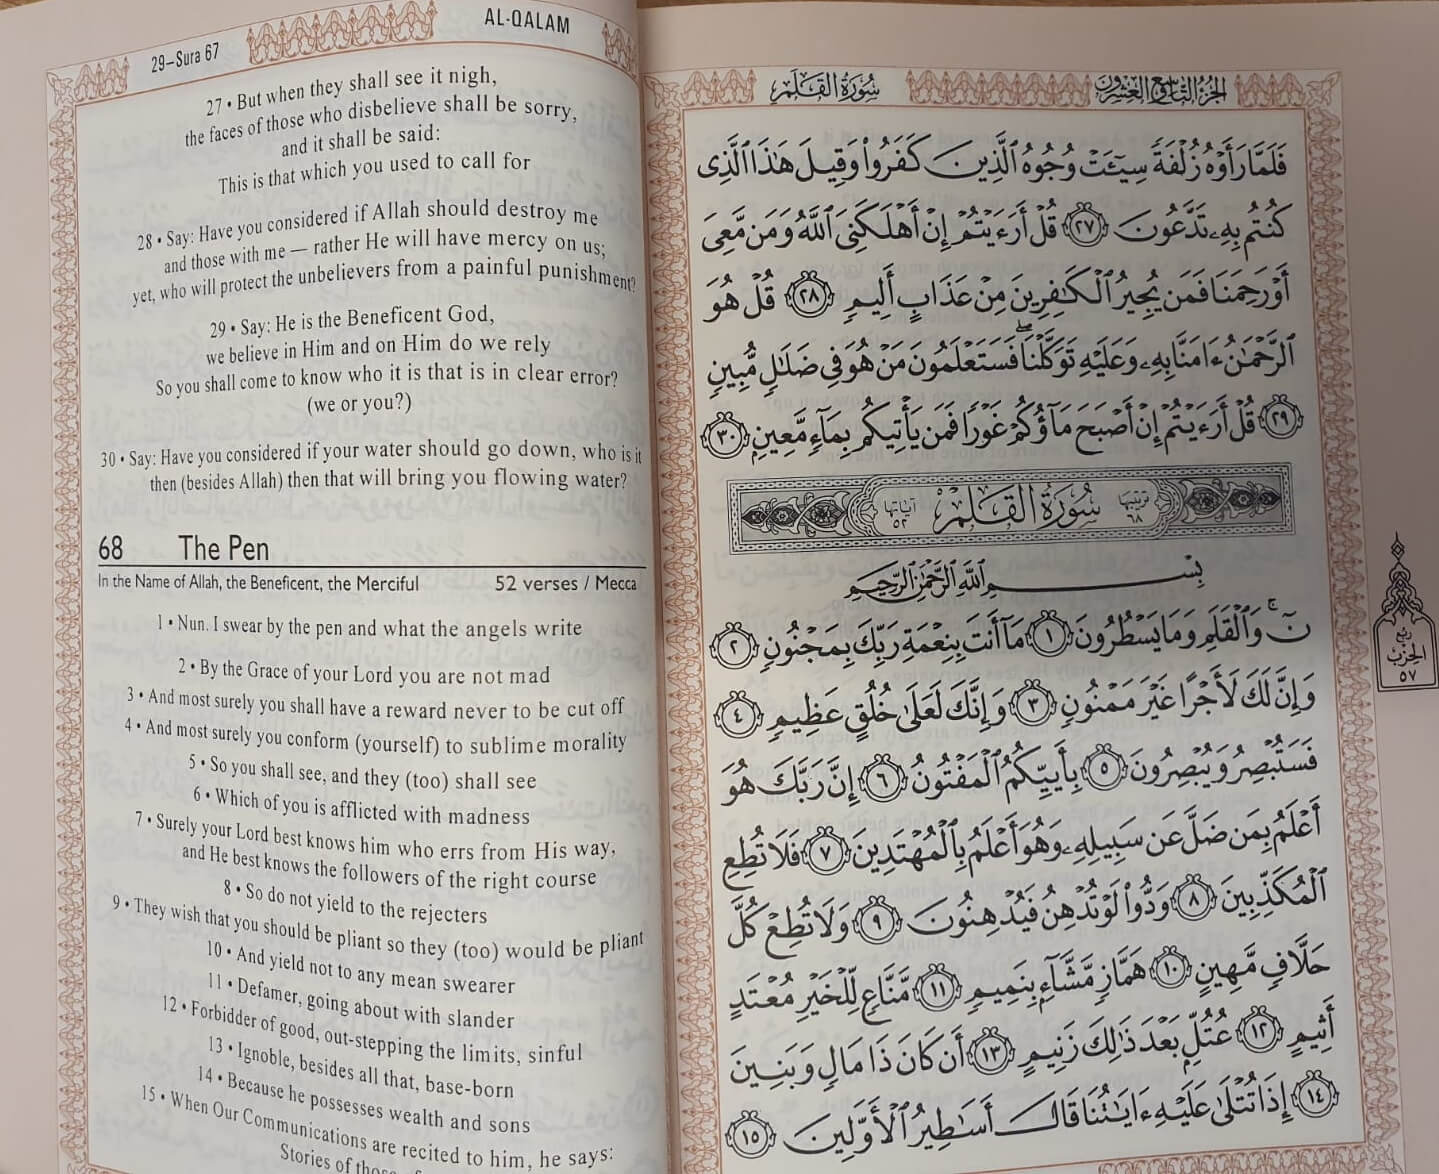 29–Sura 67
AL-QALAM
27 • But when they shall see it nigh,
the faces of those who disbelieve shall be sorry,
and it shall be said:
This is that which you used to call for
28 • Say: Have you considered if Allah should destroy me
and those with me — rather He will have mercy on us;
yet, who will protect the unbelievers from a painful punishment?
29 • Say: He is the Beneficent God,
we believe in Him and on Him do we rely
So you shall come to know who it is that is in clear error?
(we or you?)
30 • Say: Have you considered if your water should go down, who is it
then (besides Allah) then that will bring you flowing water?
68 The Pen
In the Name of Allah, the Beneficent, the Merciful 52 verses / Mecca
1 • Nun. I swear by the pen and what the angels write
2 • By the Grace of your Lord you are not mad
3 • And most surely you shall have a reward never to be cut off
4 • And most surely you conform (yourself) to sublime morality
5 • So you shall see, and they (too) shall see
6 • Which of you is afflicted with madness
7 • Surely your Lord best knows him who errs from His way,
and He best knows the followers of the right course
8 • So do not yield to the rejecters
9 • They wish that you should be pliant so they (too) would be pliant
10 • And yield not to any mean swearer
11 • Defamer, going about with slander
12 • Forbidder of good, out-stepping the limits, sinful
13 • Ignoble, besides all that, base-born
14 • Because he possesses wealth and sons
15 • When Our Communications are recited to him, he says:
Stories of those
الجزء التاسع والعشرون
سورة القلم
فَلَمَّا رَأَوْهُ زُلْفَةً سِيٓـَٔتْ وُجُوهُ ٱلَّذِينَ كَفَرُوا۟ وَقِيلَ هَٰذَا ٱلَّذِى
كُنتُم بِهِۦ تَدَّعُونَ ٢٧ قُلْ أَرَءَيْتُمْ إِنْ أَهْلَكَنِىَ ٱللَّهُ وَمَن مَّعِىَ
أَوْ رَحِمَنَا فَمَن يُجِيرُ ٱلْكَٰفِرِينَ مِنْ عَذَابٍ أَلِيمٍ ٢٨ قُلْ هُوَ
ٱلرَّحْمَٰنُ ءَامَنَّا بِهِۦ وَعَلَيْهِ تَوَكَّلْنَا ۖ فَسَتَعْلَمُونَ مَنْ هُوَ فِى ضَلَٰلٍ مُّبِينٍ
٢٩ قُلْ أَرَءَيْتُمْ إِنْ أَصْبَحَ مَآؤُكُمْ غَوْرًا فَمَن يَأْتِيكُم بِمَآءٍ مَّعِينٍۭ ٣٠
ترتيبها ٦٨ سُورَةُ القَلَمِ آياتها ٥٢
بِسْمِ ٱللَّهِ ٱلرَّحْمَٰنِ ٱلرَّحِيمِ
نٓ ۚ وَٱلْقَلَمِ وَمَا يَسْطُرُونَ ١ مَآ أَنتَ بِنِعْمَةِ رَبِّكَ بِمَجْنُونٍ ٢
وَإِنَّ لَكَ لَأَجْرًا غَيْرَ مَمْنُونٍ ٣ وَإِنَّكَ لَعَلَىٰ خُلُقٍ عَظِيمٍ ٤
فَسَتُبْصِرُ وَيُبْصِرُونَ ٥ بِأَييِّكُمُ ٱلْمَفْتُونُ ٦ إِنَّ رَبَّكَ هُوَ
أَعْلَمُ بِمَن ضَلَّ عَن سَبِيلِهِۦ وَهُوَ أَعْلَمُ بِٱلْمُهْتَدِينَ ٧ فَلَا تُطِعِ
ٱلْمُكَذِّبِينَ ٨ وَدُّوا۟ لَوْ تُدْهِنُ فَيُدْهِنُونَ ٩ وَلَا تُطِعْ كُلَّ
حَلَّافٍ مَّهِينٍ ١٠ هَمَّازٍ مَّشَّآءٍۭ بِنَمِيمٍ ١١ مَّنَّاعٍ لِّلْخَيْرِ مُعْتَدٍ
أَثِيمٍ ١٢ عُتُلٍّۭ بَعْدَ ذَٰلِكَ زَنِيمٍ ١٣ أَن كَانَ ذَا مَالٍ وَبَنِينَ
١٤ إِذَا تُتْلَىٰ عَلَيْهِ ءَايَٰتُنَا قَالَ أَسَٰطِيرُ ٱلْأَوَّلِينَ ١٥
ربع
الحزب
٥٧